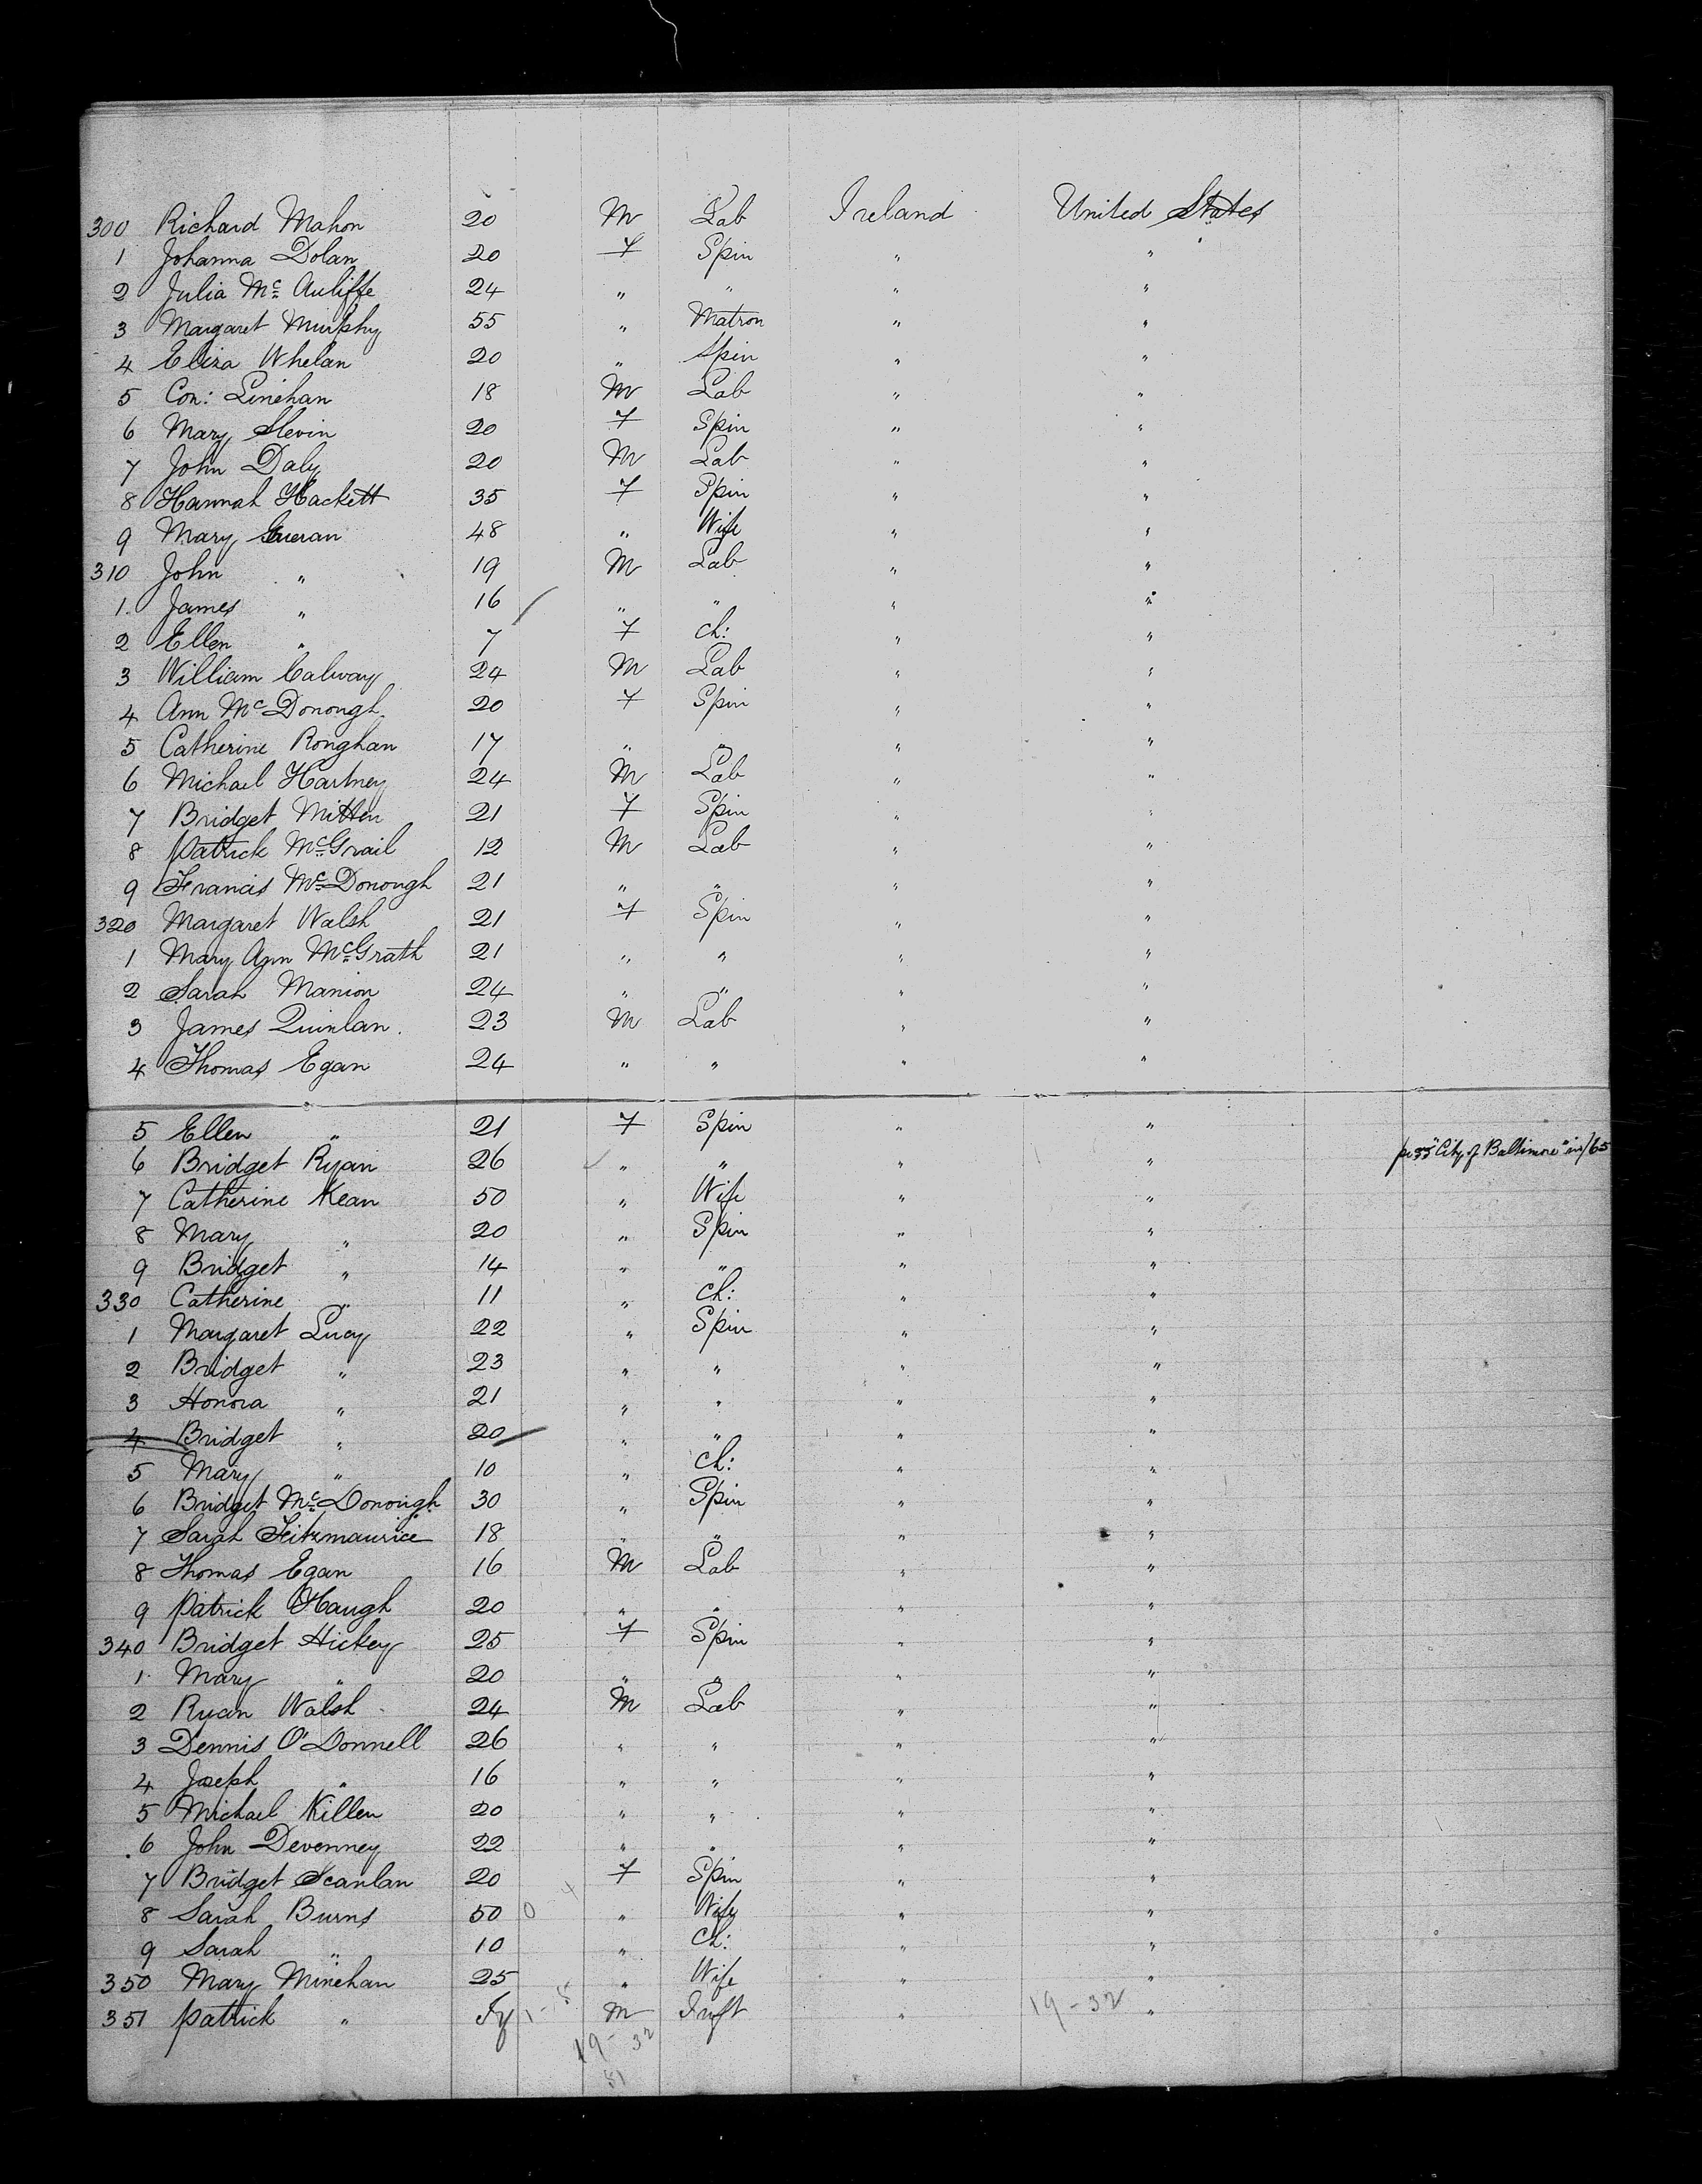 300 Richard Mahon 20 M Lab Ireland United States
1 Johanna Dolan 20 F Spin " "
2 Julia Mc Auliffe 24 " " " "
3 Margaret Murphy 55 " Matron " "
4 Eliza Whelan 20 " Spin " "
5 Con: Linehan 18 M Lab " "
6 Mary Slevin 20 F Spin " "
7 John Daly 20 M Lab " "
8 Hannah Hackett 35 F Spin " "
9 Mary Gueran 48 " Wife " "
310 John " 19 M Lab " "
1. James " 16 " " " "
2 Ellen " 7 F Ch: " "
3 William Calway 24 M Lab " "
4 Ann McDonough 20 F Spin " "
5 Catherine Ronghan 17 " " " "
6 Michael Hartney 24 M Lab " "
7 Bridget Mitten 21 F Spin " "
8 Patrick McGrail 12 M Lab " "
9 Francis McDonough 21 " " " "
320 Margaret Walsh 21 F Spin " "
1 Mary Ann McGrath 21 " " " "
2 Sarah Manion 24 " " " "
3 James Quinlan. 23 M Lab " "
4 Thomas Egan 24 " " " "
5 Ellen " 21 F Spin " "
6 Bridget Ryan 26 " " " " "City of Baltimore" in/65
7 Catherine Kean 50 " Wife " "
8 Mary " 20 " Spin " "
9 Bridget " 14 " " " "
330 Catherine " 11 " Ch: " "
1 Margaret Lucy 22 " Spin " "
2 Bridget " 23 " " " "
3 Honora " 21 " " " "
4 Bridget " 20 " " " "
5 Mary " 10 " Ch: " "
6 Bridget McDonough 30 " Spin " "
7 Sarah Fitzmaurice 18 " " " "
8 Thomas Egan 16 M Lab " "
9 Patrick Haugh 20 " " " "
340 Bridget Hickey 25 F Spin " "
1. Mary " 20 " " " "
2 Ryan Walsh 24 M Lab " "
3 Dennis O'Donnell 26 " " " "
4 Joseph " 16 " " " "
5 Michael Killen 20 " " " "
6 John Devenney 22 " " " "
7 Bridget Scanlan 20 F Spin " "
8 Sarah Burns 50 " Wife " "
9 Sarah " 10 " Ch: " "
350 Mary Minehan 25 " Wife " "
351 Patrick " M Inft " 19-32 "
19-32
51